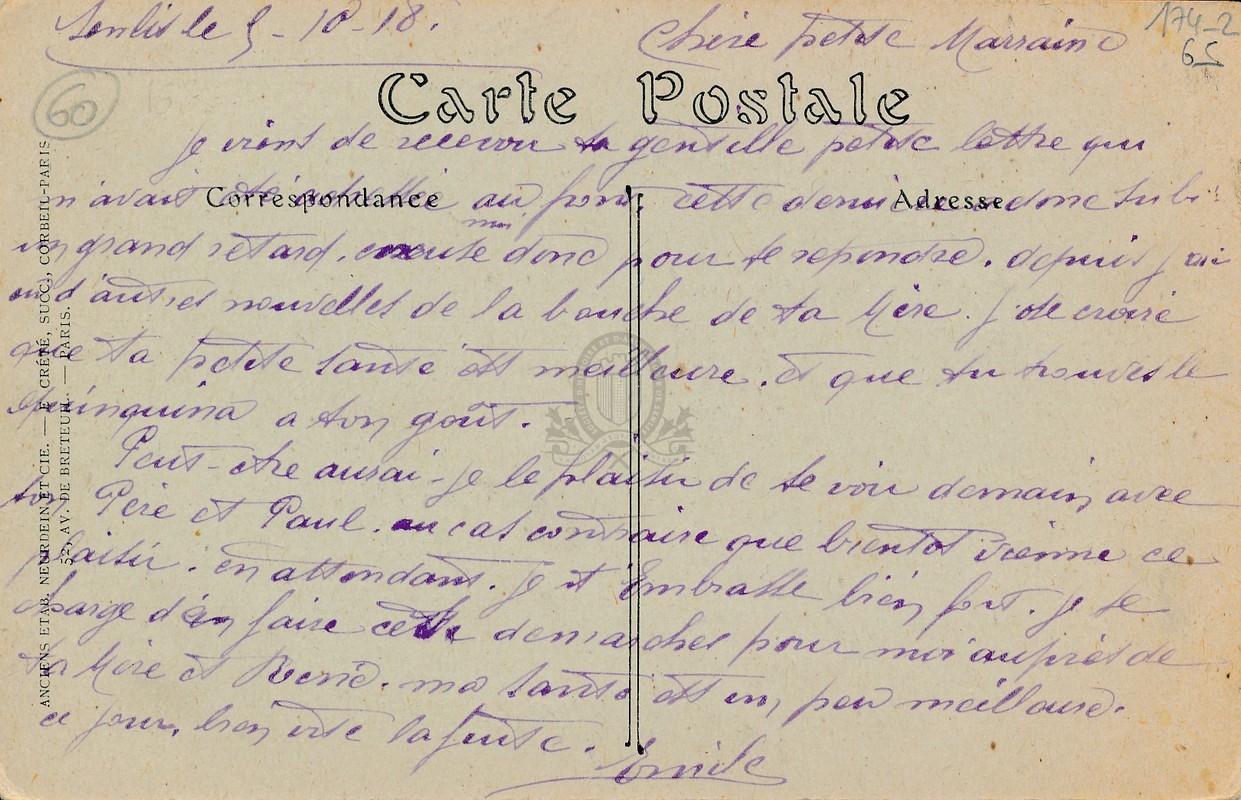 Senlis le 5-10-18.
Chère petite Marraine
174-2
65
60
Carte Postale
Je viens de recevoir ta gentille petite lettre qui
n'avait été au fond. cette dernière a donc subi
Correspondance
Adresse
un grand retard. excuse moi donc pour te repondre. depuis j'ai
eu d'autres nouvelles de la bouche de ta Mère. J'ose croire
que ta petite santé est meilleure. et que tu trouves le
Quinquina a ton goût.
Peut-etre aurai-je le plaisir de te voir demain avec
ton Père et Paul. au cas contraire que bientot vienne ce
plaisir. en attendant. Je t'Embrasse bien fort. Je te
charge d'en faire cette demarches pour moi auprès de
ta Mère et René. ma santé est un peu meilleure.
ce jour. bien vite la suite.
Emile
ANCIENS ETAB. NEURDEIN ET CIE. — E. CRÉTÉ, SUCC., CORBEIL-PARIS
52, AV. DE BRETEUIL. — PARIS.